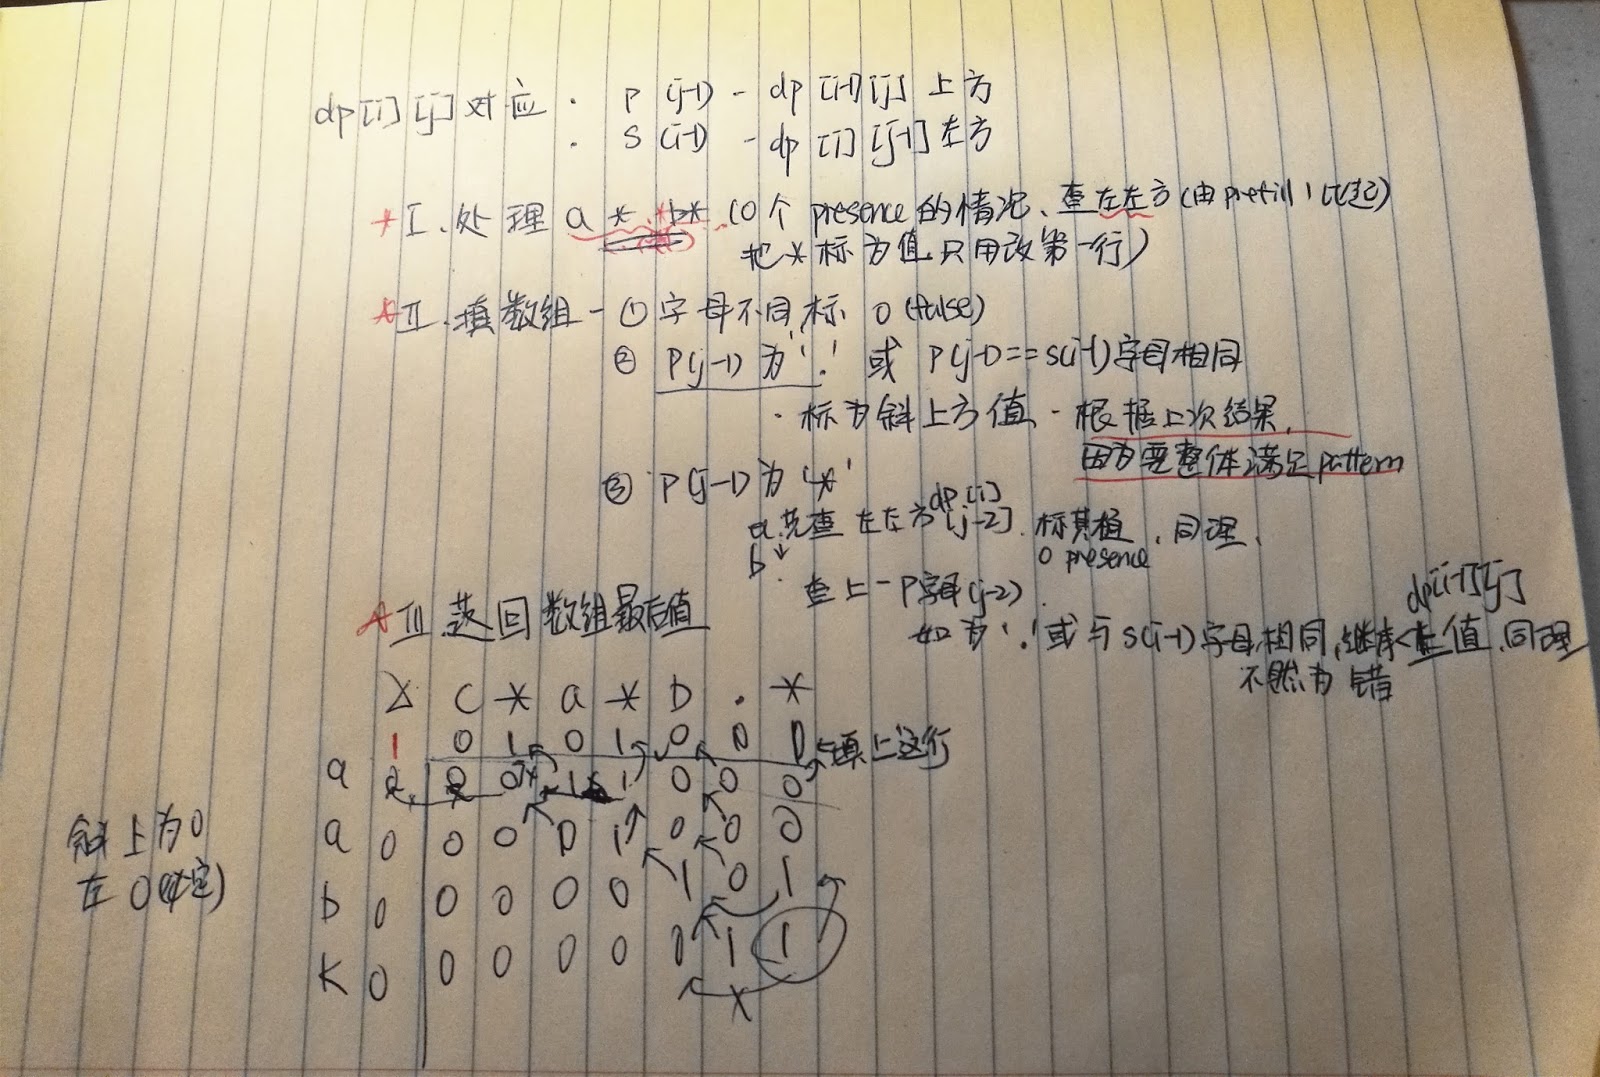 dp[i][j]对应 · P(j-1) - dp[i-1][j]上方
· S(i-1) - dp[i][j-1]左方
* I. 处理 a * b* (0个presence的情况、查左左方(由prefill 1比起)
把*标为值 只用改第一行)
II. 填数组 - ① 字母不同标 0 (false)
② P(j-1)为'.' 或 P(j-1)==S(i-1)字母相同
· 标为斜上方值 - 根据上次结果,
因为要整体满足pattern
③ P(j-1)为'*'
a. 先查左左方dp[i][j-2]. 标其值, 同理,
0 presence
b. 查上一P字母(j-2).
如为'.'或与S(i-1)字母相同, 值,同理
dp[i-1][j]
不然为错
III 返回数组最后值
C * a * b . *
1 0 1 0 1 0 0 0 填上这行
a 0 0 1 1 0 0 0
a 0 0 0 0 1 0 0 0
b 0 0 0 0 0 1 0 1
K 0 0 0 0 0 0 1 1
斜上为0
左0